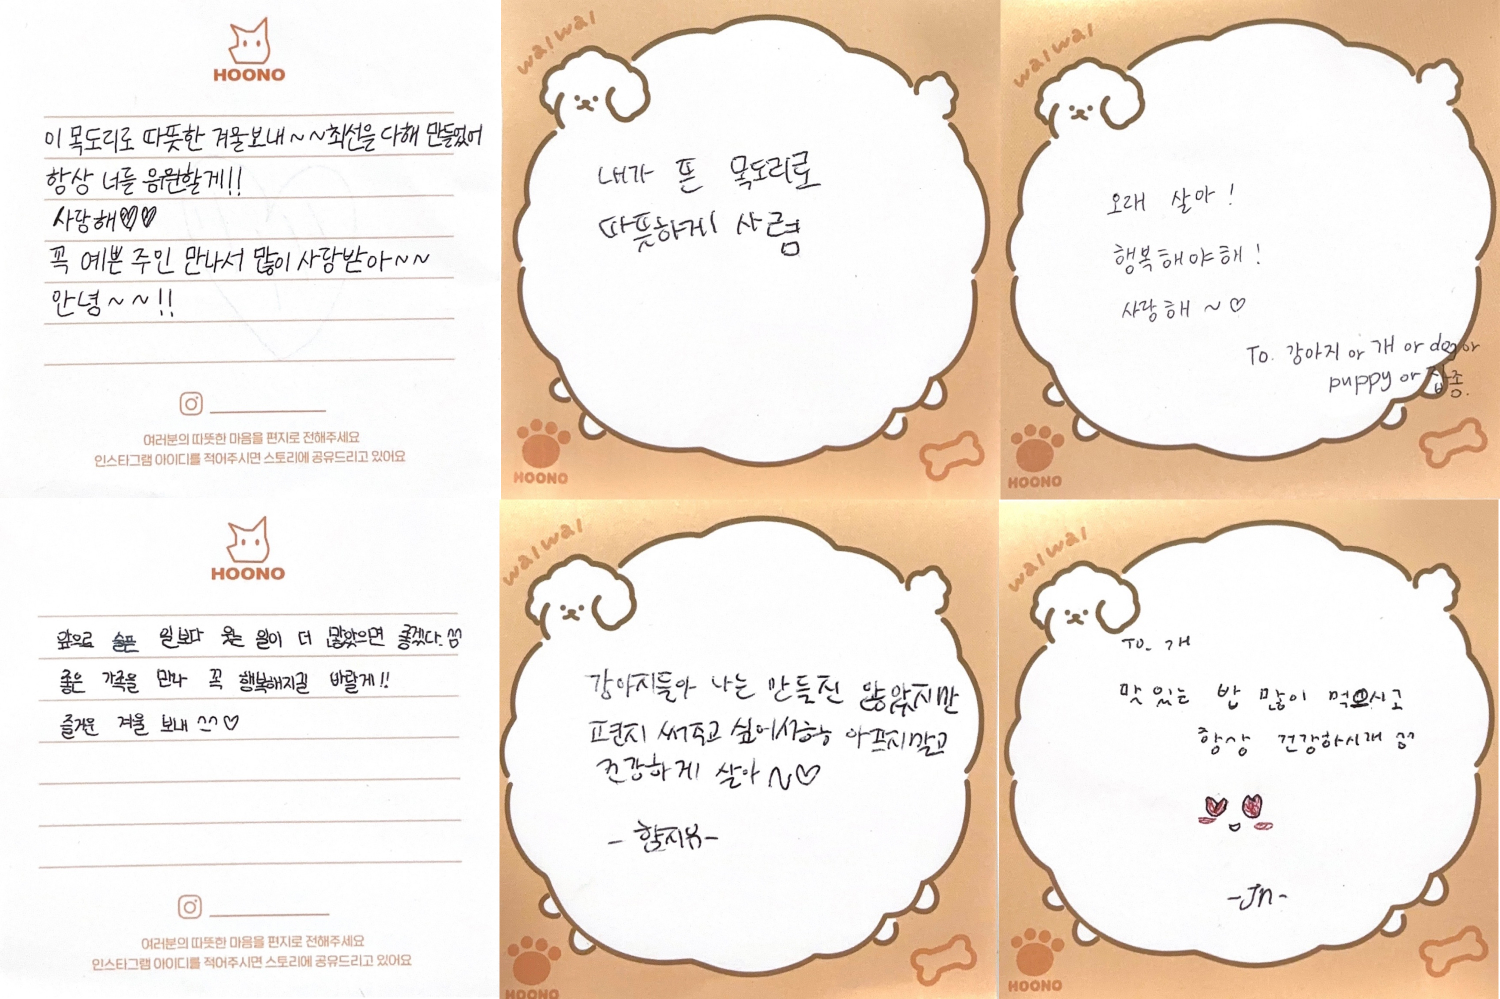 HOONO
이 목도리로 따뜻한 겨울보내~~최선을 다해 만들었어
항상 너를 응원할게!!
사랑해♡♡
꼭 예쁜 주인 만나서 많이 사랑받아~~
안녕~~!!
여러분의 따뜻한 마음을 편지로 전해주세요
인스타그램 아이디를 적어주시면 스토리에 공유드리고 있어요
walwal
내가 뜬 목도리로
따뜻하게 사렴
HOONO
walwal
오래 살아!
행복해야해!
사랑해~♡
To. 강아지 or 개 or dog or
puppy or 잡종.
HOONO
HOONO
앞으로 슬픈 일보다 웃는 일이 더 많았으면 좋겠다.^^
좋은 가족을 만나 꼭 행복해지길 바랄게!!
즐거운 겨울 보내 ^^♡
여러분의 따뜻한 마음을 편지로 전해주세요
인스타그램 아이디를 적어주시면 스토리에 공유드리고 있어요
walwal
강아지들아 나는 만들진 않았지만
편지 써주고 싶어 아프지말고
건강하게 살아~♡
HOONO
walwal
To. 개
맛있는 밥 많이 먹으시고
항상 건강하시개 ^^
-Jn-
HOONO